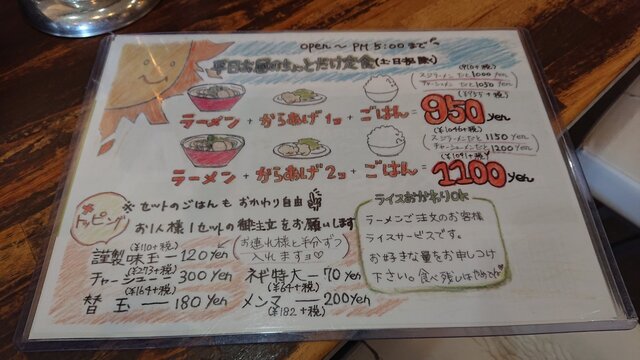 open〜PM 5:00まで
平日お昼のちょっとだけ定食(土日祝除く)
ラーメン + からあげ1コ + ごはん = 950 yen
(¥910+税)
スジラーメンだと 1000 yen
チャーシューメンだと 1050 yen
(¥955+税)
ラーメン + からあげ2コ + ごはん = 1100 yen
(¥1046+税)
スジラーメンだと 1150 yen
チャーシューメンだと 1200 yen
(¥1091+税)
※セットのごはんも おかわり自由
お1人様1セットの御注文をお願いします
トッピング
(¥110+税)
謹製味玉 — 120 yen
(¥273+税)
チャーシュー — 300 yen
(¥164+税)
替玉 — 180 yen
(お連れ様と半分ずつ
入れます♡)
ネギ特大 — 70 yen
(¥64+税)
メンマ — 200 yen
(¥182+税)
ライスおかわりOK
ラーメンご注文のお客様
ライスサービスです。
お好きな量をお申しつけ
下さい。食べ残しはやめてね♡